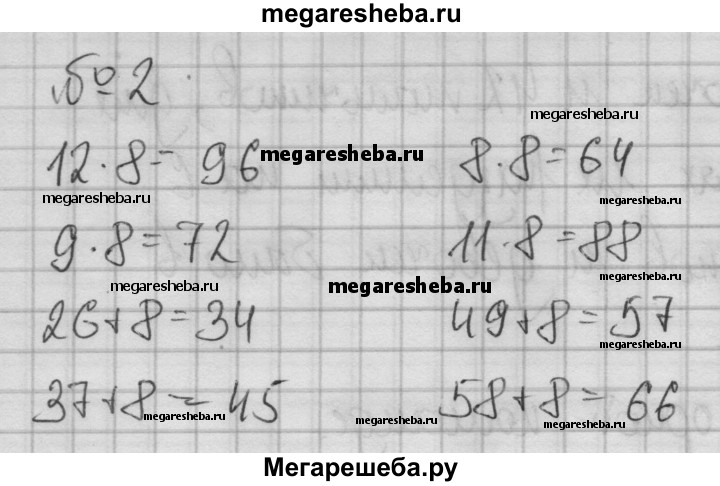 megaresheba.ru
№ 2
megaresheba.ru
12 · 8 = 96 megaresheba.ru 8 · 8 = 64
megaresheba.ru megaresheba.ru
9 · 8 = 72 11 · 8 = 88
megaresheba.ru megaresheba.ru megaresheba.ru
26 + 8 = 34 49 + 8 = 57
megaresheba.ru
37 + 8 = 45 58 + 8 = 66
megaresheba.ru megaresheba.ru megaresheba.ru
Мегарешеба.ру